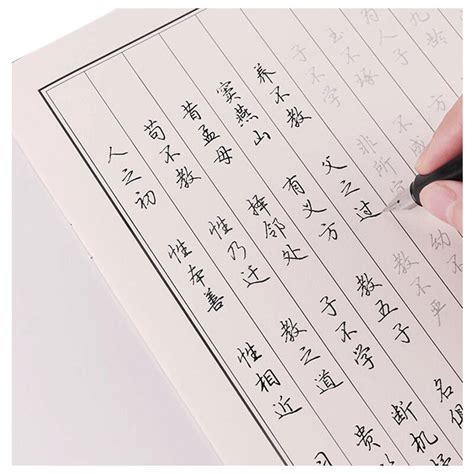 人之初 性本善 性相近
苟不教 性乃迁 教之道 贵
昔孟母 择邻处 子不学 断机
窦燕山 有义方 教五子 名俱
养不教 父之过 教不严
子不学 非所宜 幼不
玉不琢 不成
为人子 方
九龄